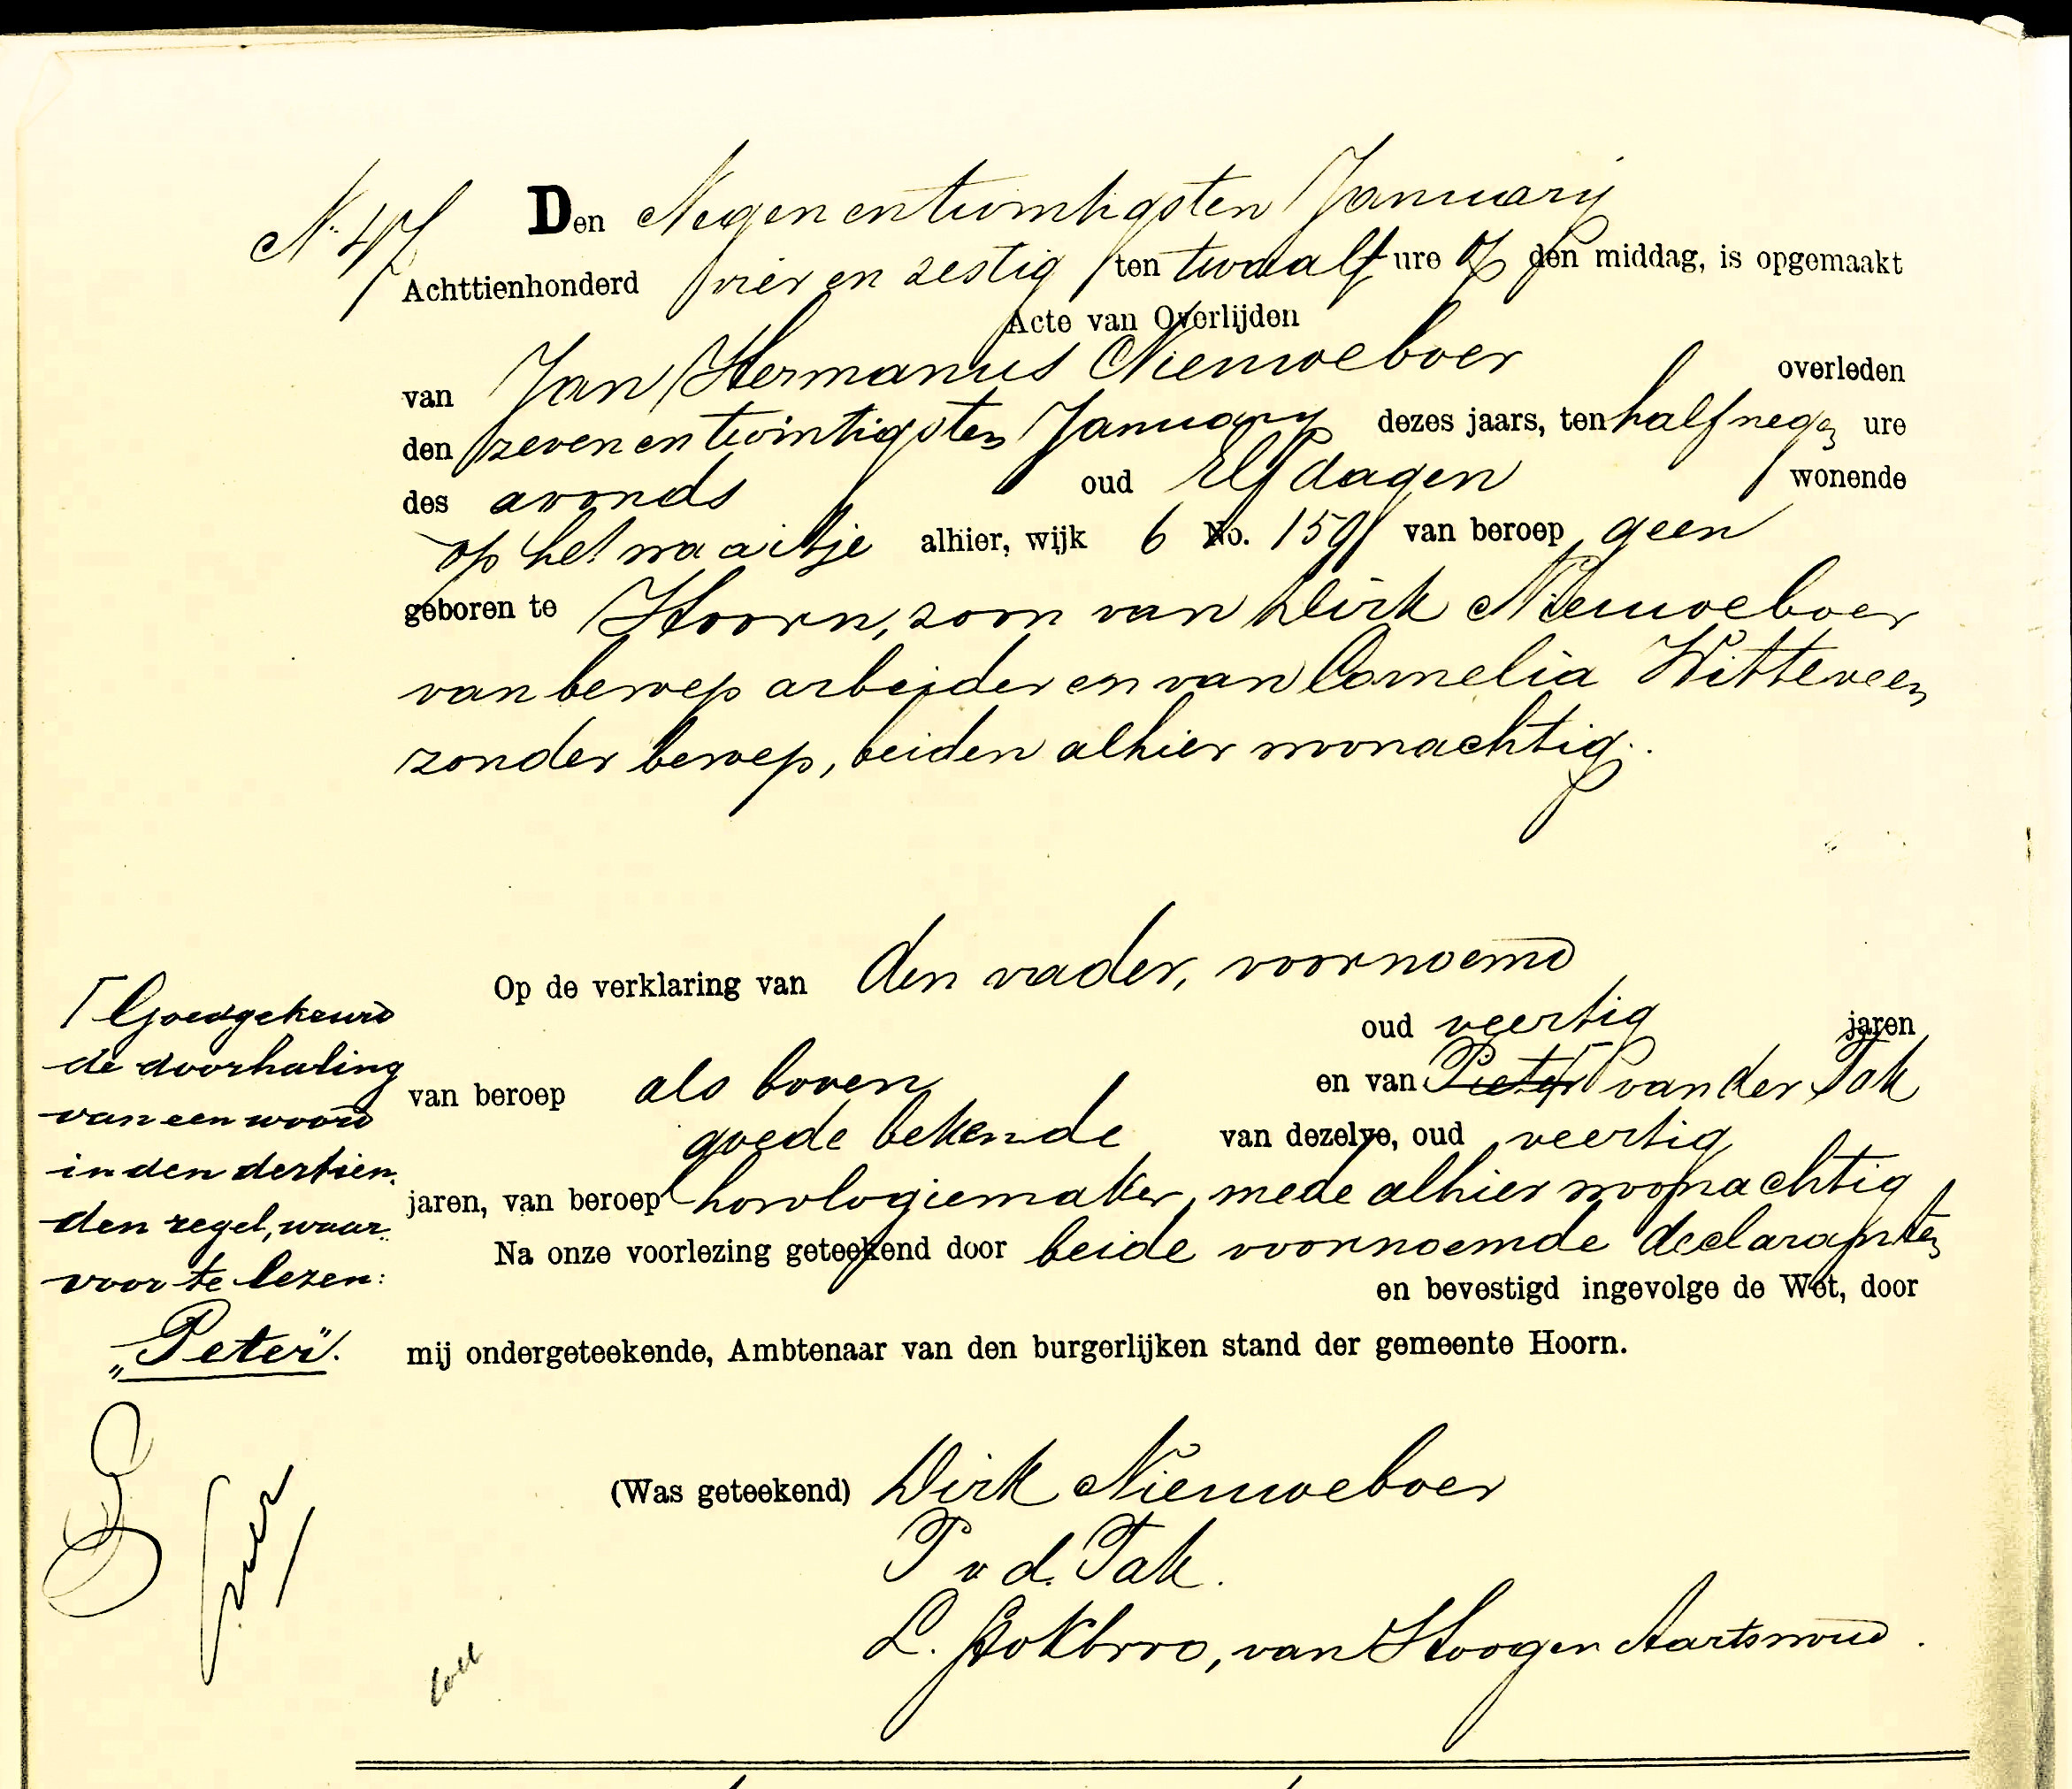 N. 47
Den Negen en twintigsten January
Achttienhonderd vier en zestig ten twaalf ure op den middag, is opgemaakt
Acte van Overlijden
van Jan Hermanus Nieuweboer overleden
den zeven en twintigsten January dezes jaars, ten half negen ure
des avonds oud Elf dagen wonende
op het waaitje alhier, wijk 6 No. 159 van beroep geen
geboren te Hoorn, zoon van Dirk Nieuweboer
van beroep arbeider en van Cornelia Witteveen
zonder beroep, beiden alhier woonachtig.
Op de verklaring van den vader, voornoemd
oud veertig jaren
van beroep als boven en van Pieter van der Tak
goede bekende van dezelve, oud veertig
jaren, van beroep horologiemaker, mede alhier woonachtig
Na onze voorlezing geteekend door beide voornoemde declaranten
en bevestigd ingevolge de Wet, door
mij ondergeteekende, Ambtenaar van den burgerlijken stand der gemeente Hoorn.
Γ Goedgekeurd
de doorhaling
van een woord
in den dertien-
den regel, waar-
voor te lezen:
„Peter".
(Was geteekend) Dirk Nieuweboer
P v d. Tak.
L. Stokbroo, van Hoogen Aartswoud.